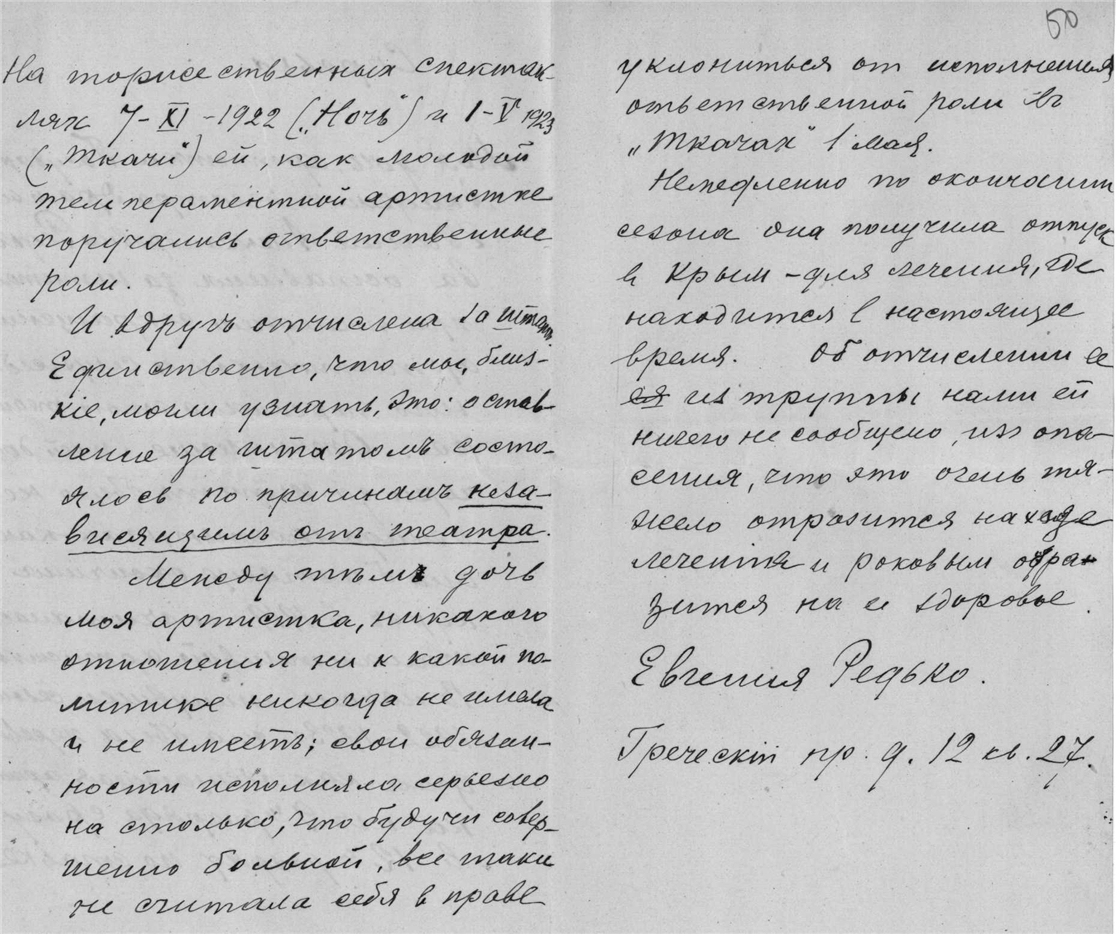 50
На торжественных спектак-
лях 7-XI-1922 („Ночь") и 1-V 1923
(„Ткачи") ей, как молодой
темпераментной артистке
поручались ответственные
роли.
И вдругъ отчислена за штатъ.
Единственно, что мы, близ-
кіе, могли узнать, это: остав-
ление за штатомъ состо-
ялось по причинамъ неза-
висящимъ отъ театра.
Между тѣмъ дочь
моя артистка, никакого
отношения ни к какой по-
литике никогда не имела
и не имеетъ; свои обязан-
ности исполняла серьезно
на столько, что будучи совер-
шенно больной, все таки
не считала себя в праве
уклониться от исполнения
ответственной роли въ
„Ткачах" 1 мая.
Немедленно по окончании
сезона она получила отпуск
в Крым - для лечения, где
находится в настоящее
время. Об отчислении ее
ея из труппы нами ей
ничего не сообщено, изъ опа-
сения, что это очень тя-
жело отразится на ходе
лечения и роковым обра-
зится на ее здоровье.
Евгения Редько.
Греческій пр. д. 12 кв. 27.